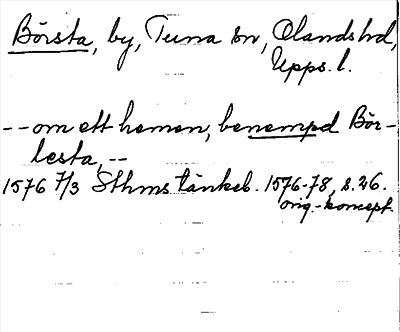 Börsta, by, Tuna sn, Olandshd,
Upps. l.
-- om ett hemen, benempd Bör-
lesta, --
1576 7/3 Sthms tänkeb. 1576-78, s. 26.
orig.-koncept.